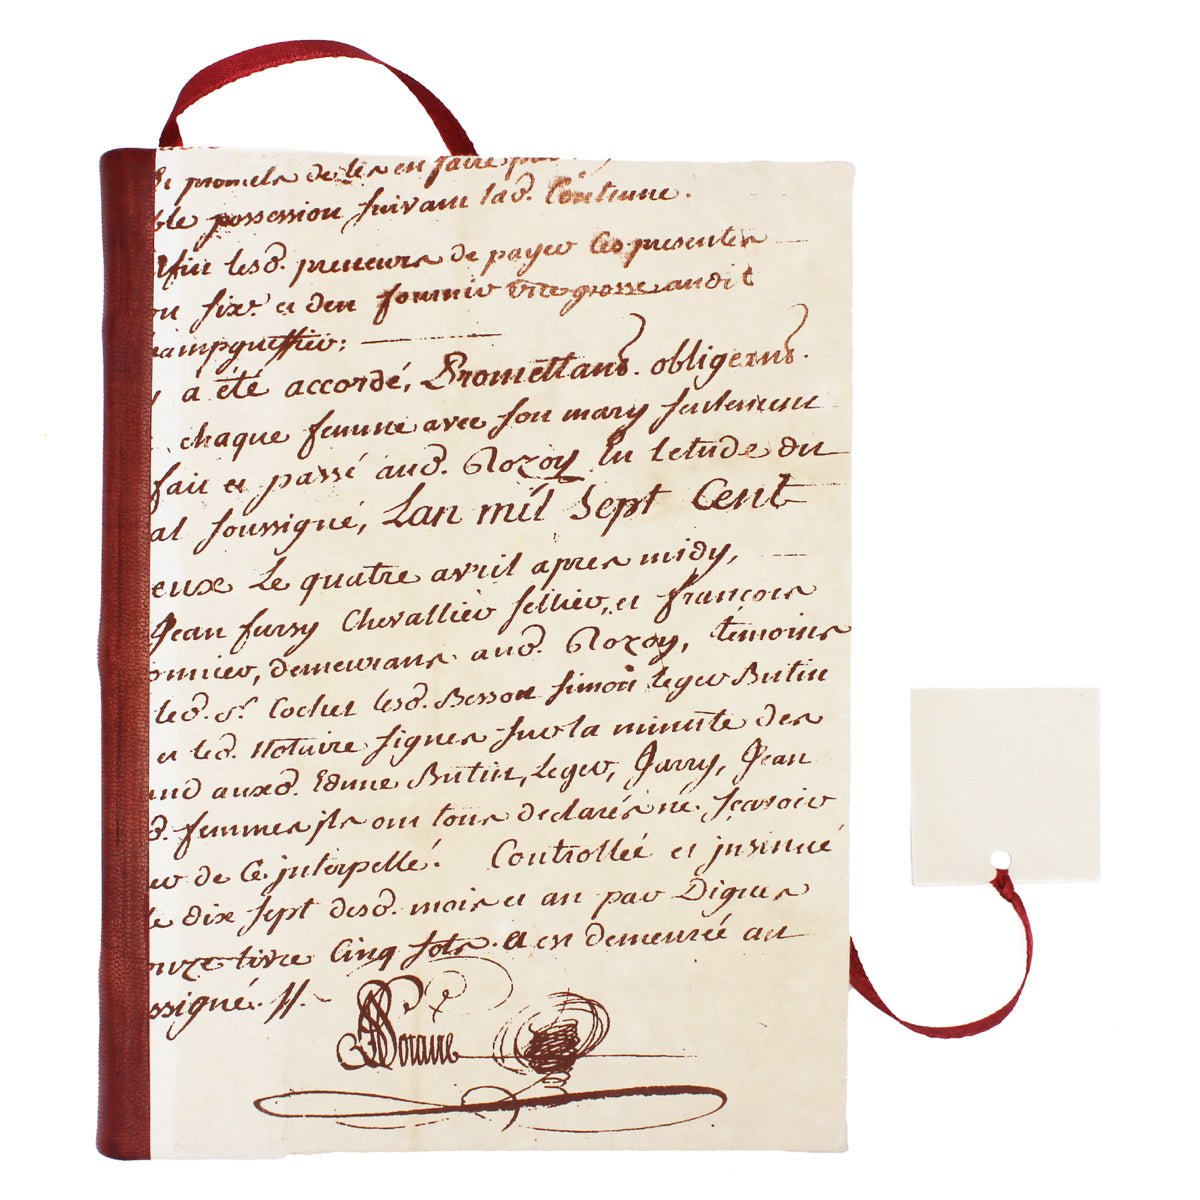 promets de les en faire
ble possession suivant lad. Coutume.
lesd. preneurs de payer les presentes
six. et den fournir une grosse audit
a été accordé, Promettans. obligeans.
chaque femme avec son mary seulement
fait et passé aud. Rozoy En letude du
al soussigné, Lan mil Sept Cent
eux Le quatre avril apres midy,
Jean fursy Chevallier sellier, et françois
onnier, demeurans aud. Rozoy, témoins
led. Sr. Cochet lesd. Besson simon leger Butin
et led. Notaire signes sur la minutte des
auxd. Edme Butin, Leger, Garry, Jean
d. femmes ils ont tous declarés ne. sçavoir
de Ce. interpellé. Controllée et insinué
le dix sept desd. mois et an par Digues
onze livre Cinq sols. et en demeuré au
ssigné. //.